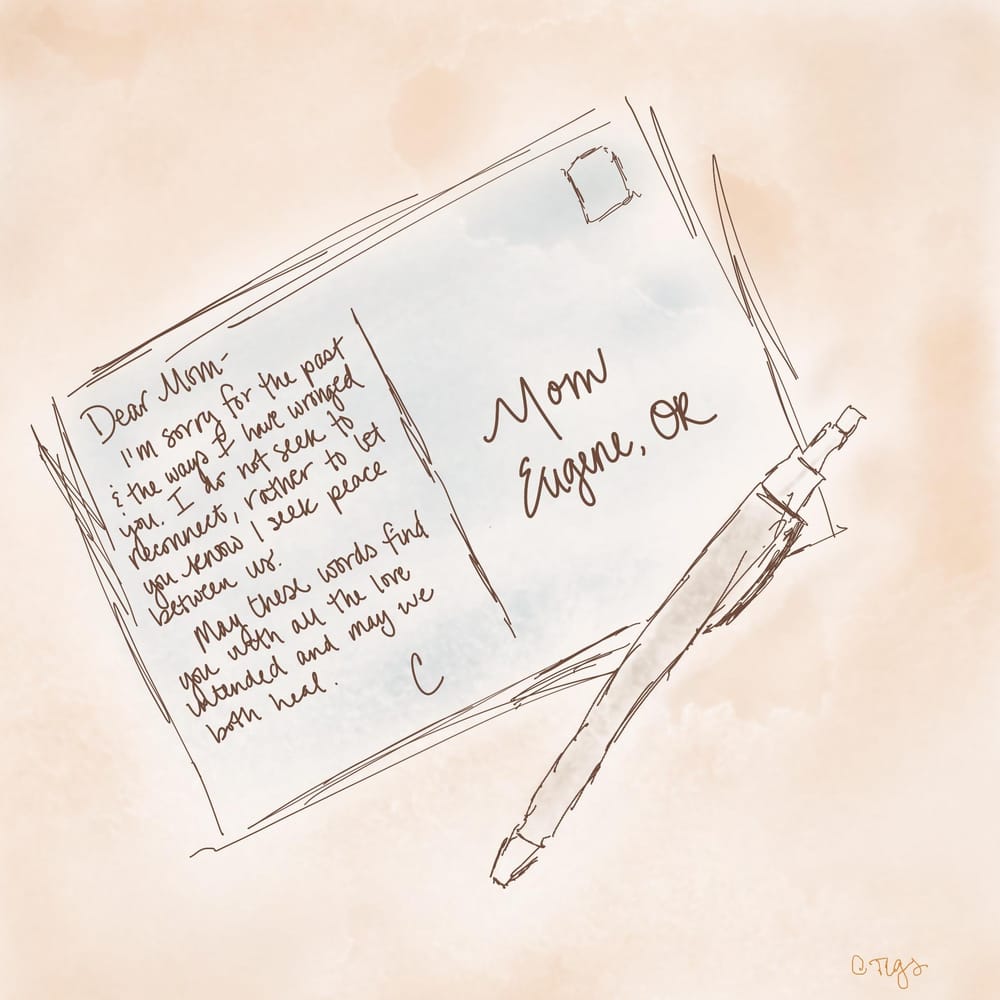 Dear Mom-
I'm sorry for the past
& the ways I have wronged
you. I do not seek to
reconnect, rather to let
you know I seek peace
between us.
May these words find
you with all the love
intended and may we
both heal.
C
Mom
Eugene, OR